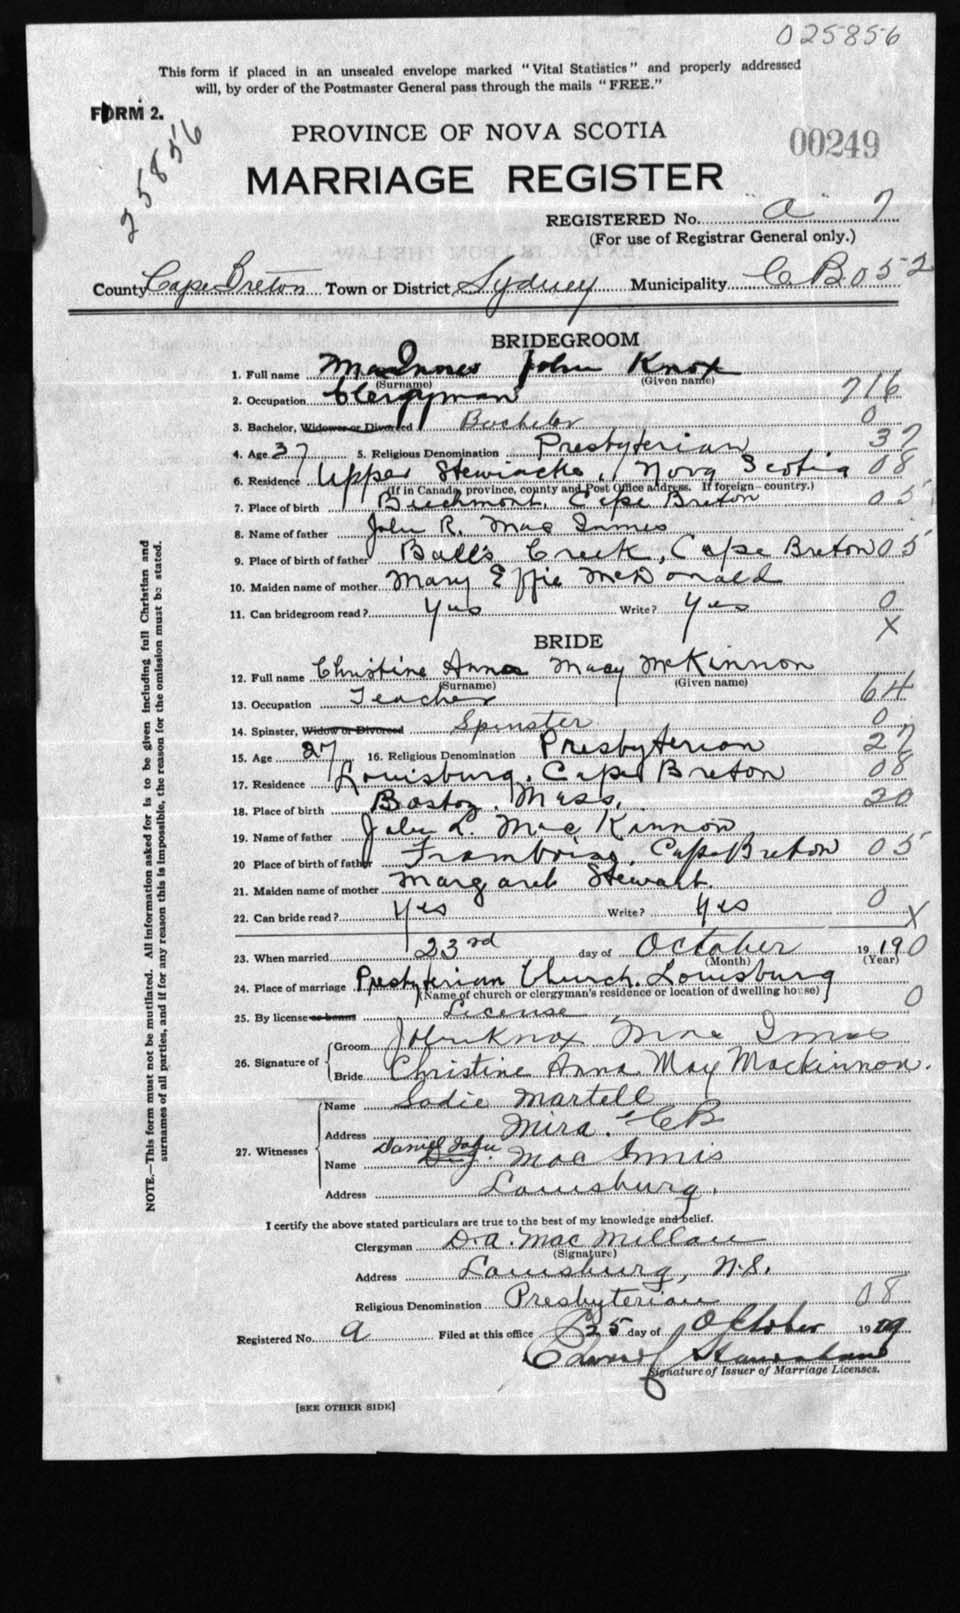 025856
This form if placed in an unsealed envelope marked "Vital Statistics" and properly addressed
will, by order of the Postmaster General pass through the mails "FREE."
FORM 2.
25856
PROVINCE OF NOVA SCOTIA
00249
MARRIAGE REGISTER
REGISTERED No. "a" 7
(For use of Registrar General only.)
County Cape Breton Town or District Sydney Municipality C B 052
BRIDEGROOM
1. Full name MacInnes John Knox
(Surname) (Given name)
2. Occupation Clergyman 716
3. Bachelor, Widower or Divorced Bachelor 0
4. Age 37 5. Religious Denomination Presbyterian 37
6. Residence Upper Stewiacke, Nova Scotia 08
(If in Canada, province, county and Post Office address. If foreign—country.)
7. Place of birth Beechmont, Cape Breton 05
8. Name of father John R. MacInnes
9. Place of birth of father Ball's Creek, Cape Breton 05
10. Maiden name of mother Mary Effie McDonald
11. Can bridegroom read? Yes Write? Yes 0
X
BRIDE
12. Full name Christine Anna May McKinnon
(Surname) (Given name)
13. Occupation Teacher 64
14. Spinster, Widow or Divorced Spinster 0
15. Age 27 16. Religious Denomination Presbyterian 27
17. Residence Louisburg, Cape Breton 08
18. Place of birth Boston, Mass. 20
19. Name of father John L. MacKinnon
20 Place of birth of father Framboise, Cape Breton 05
21. Maiden name of mother Margaret Stewart.
22. Can bride read? Yes Write? Yes 0
X
23. When married 23rd day of October 19 19 0
(Month) (Year)
24. Place of marriage Presbyterian Church, Louisburg
(Name of church or clergyman's residence or location of dwelling house) 0
25. By license or banns License
26. Signature of Groom John Knox MacInnes
Bride Christine Anna May Mackinnon.
27. Witnesses Name Sadie Martell
Address Mira. CB
Daniel John
Name D. J. Mac Innis
Address Louisburg.
I certify the above stated particulars are true to the best of my knowledge and belief.
Clergyman D.A. MacMillan
(Signature)
Address Louisburg, N.S.
Religious Denomination Presbyterian 08
Registered No. a Filed at this office 25 day of October 1919
Signature of Issuer of Marriage Licenses.
[SEE OTHER SIDE]
NOTE.—This form must not be mutilated. All information asked for is to be given including full Christian and
surnames of all parties, and if for any reason this is impossible, the reason for the omission must be stated.